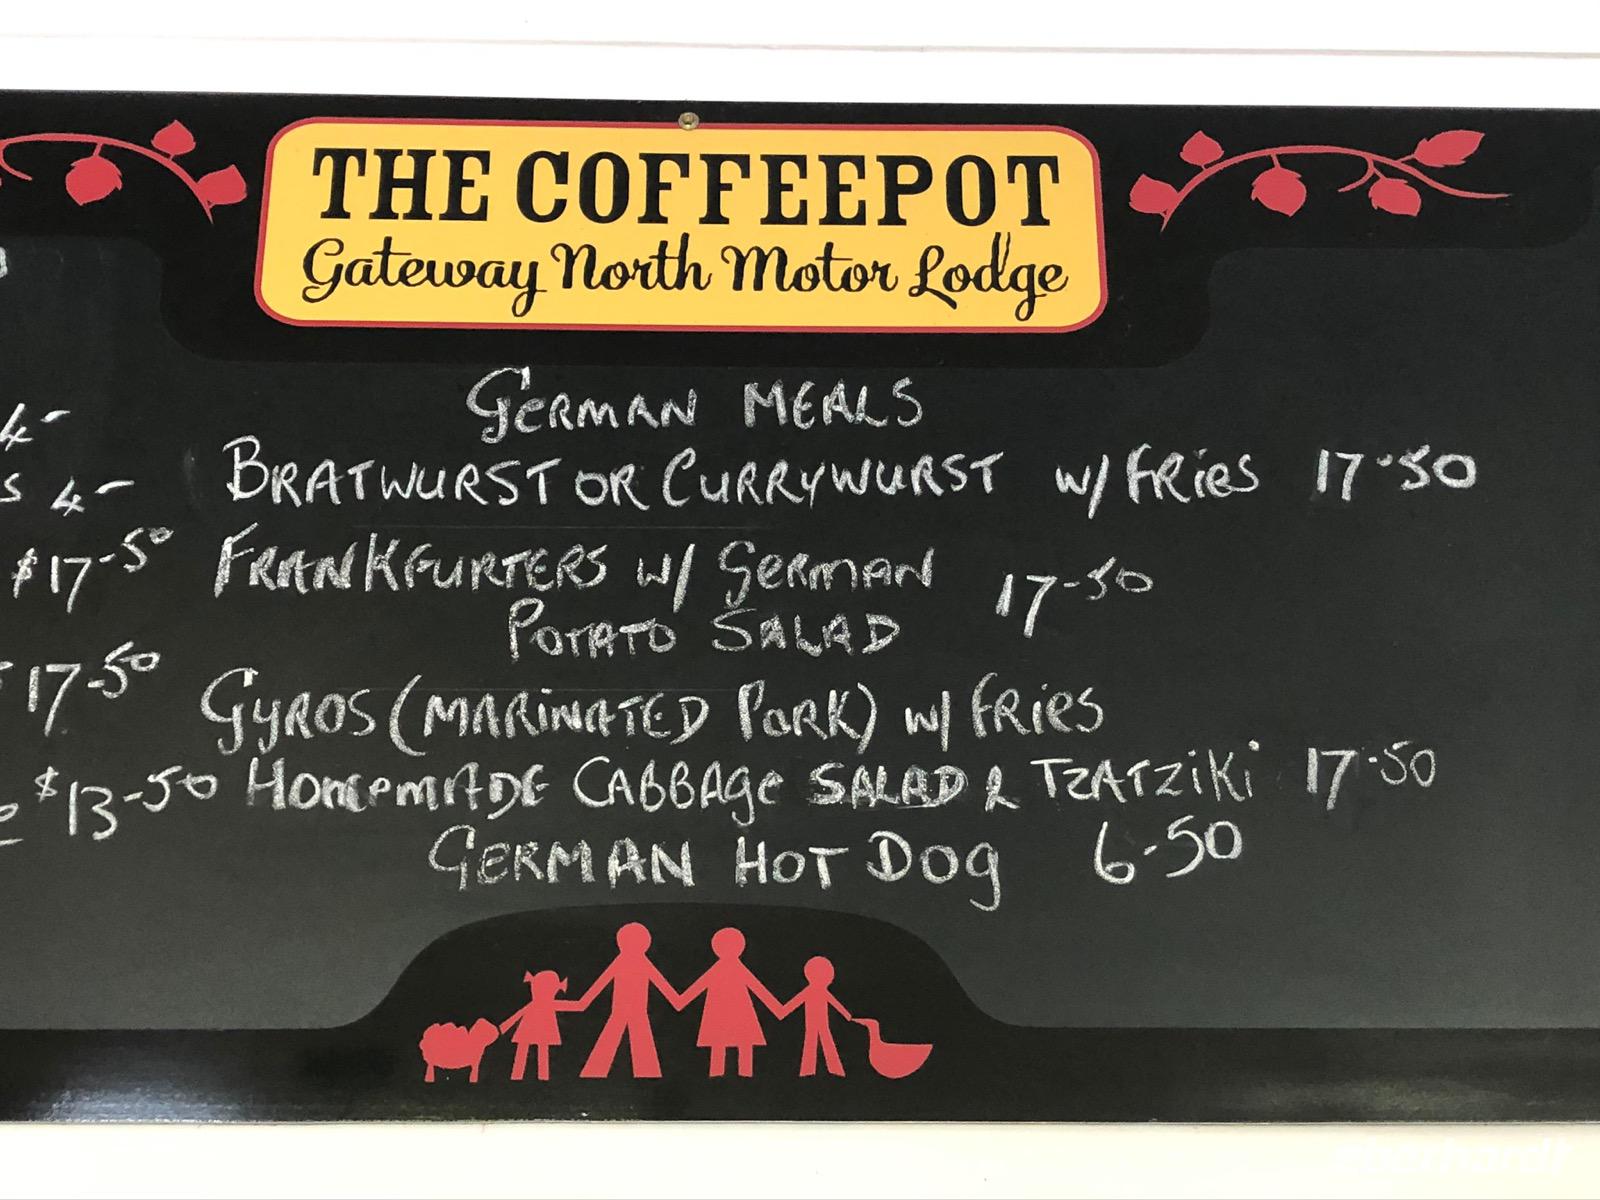 THE COFFEEPOT
Gateway North Motor Lodge
GERMAN MEALS
4-
S 4-
BRATWURST OR CURRYWURST W/ FRIES 17-50
$17-50
FRANKFURTERS W/ GERMAN 17-50
POTATO SALAD
17-50
GYROS (MARINATED PORK) W/ FRIES
$13-50
HOMEMADE CABBAGE SALAD & TZATZIKI 17-50
GERMAN HOT DOG 6-50
eberhardt